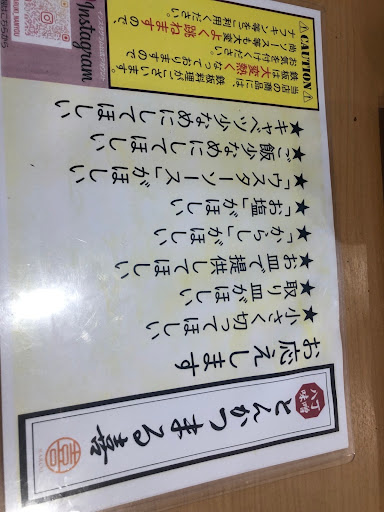 八丁
味噌
とんかつまる喜
お応えします
★小さく切ってほしい
★取り皿がほしい
★お皿で提供してほしい
★「からし」がほしい
★「お塩」がほしい
★「ウスターソース」がほしい
★ご飯少なめにしてほしい
★キャベツ少なめにしてほしい
⚠CAUTION⚠
当店の商品には、
鉄板料理がございます。
鉄板は大変熱くなっておりますので
お気を付けください。
尚、ソース等も大変よく跳ねますので
ナプキン等をご利用ください。
Instagram
はこちらから